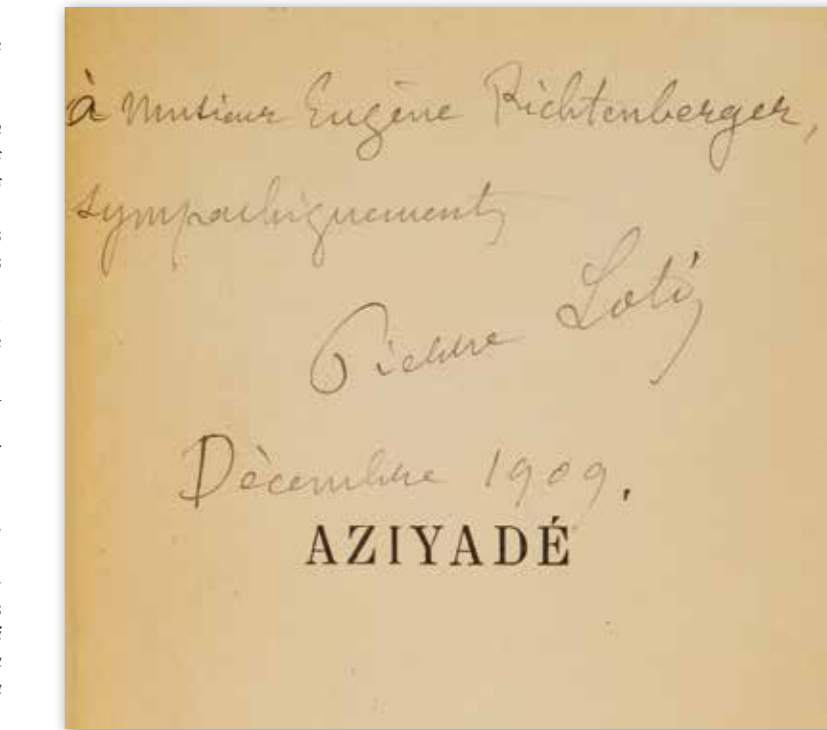 à Monsieur Eugène Richtenberger,
sympathiquement,
Pierre Loti
Décembre 1909.
AZIYADÉ